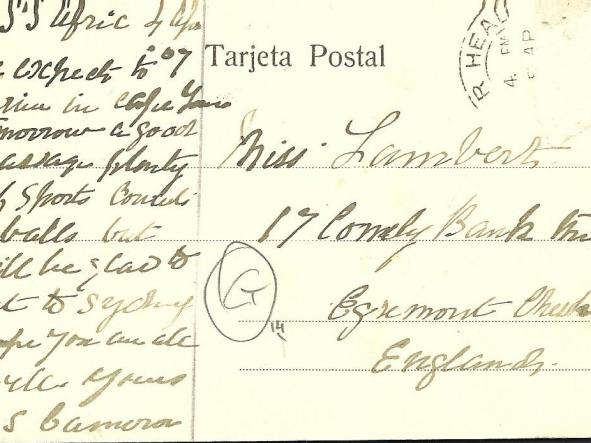 SS Afric 4 Apr
expect to '07
in Cape Town
a good
passage plenty
Sports
balls but
will be glad to
to Sydney
hope you are all
yours
S Cameron
Tarjeta Postal
R HEAD
4. PM
AP
Miss Lambert
17 Comely Bank
Egremont
England
G
14